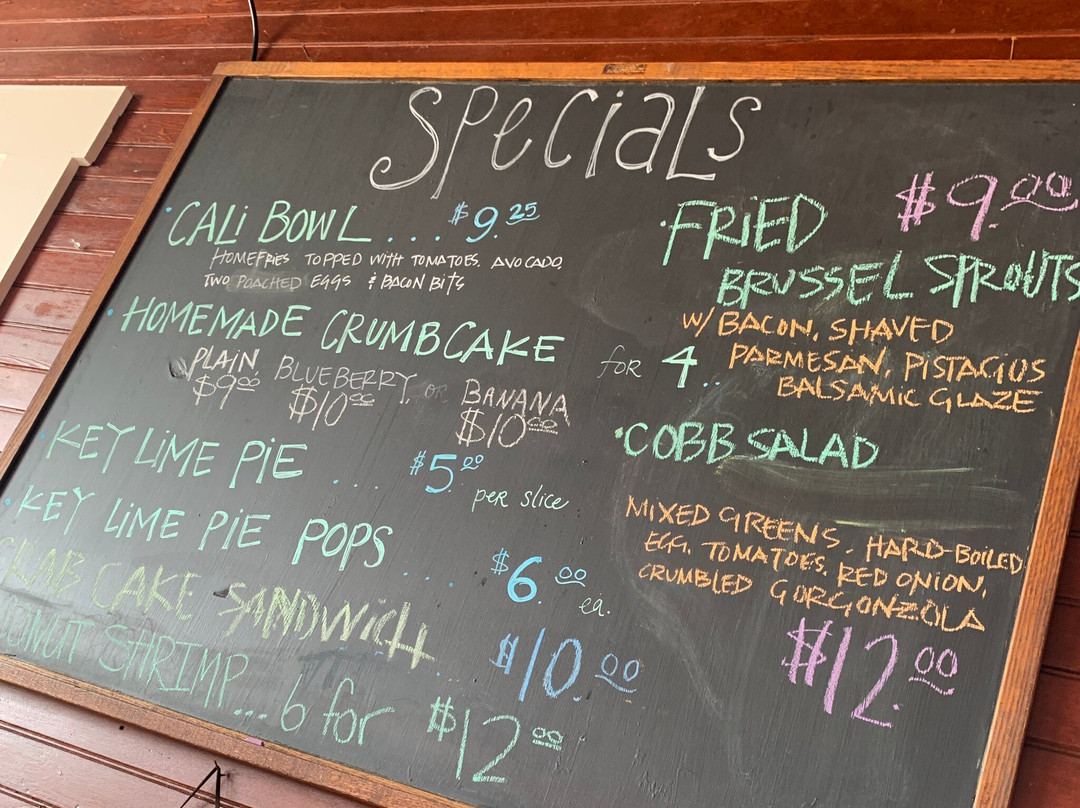 SPECiALS
• CALi BOWL .... $9.25
HOMEFRIES TOPPED WITH TOMATOES, AVOCADO,
TWO POACHED EGGS & BACON BITS
• HOMEMADE CRUMBCAKE
PLAIN, BLUEBERRY, OR BANANA
$9.00 $10.00 $10.00
• KEY LiME PiE .... $5.00
per slice
• KEY LiME PiE POPS .... $6.00
ea.
CRAB CAKE SANDWiCH.... $10.00
ONUT SHRIMP... 6 for $12.00
• FRiED $9.00
BRUSSEL SPROUTS
for 4.. W/ BACON, SHAVED
PARMESAN, PISTACIOS
BALSAMIC GLAZE
• COBB SALAD
MIXED GREENS, HARD-BOILED
EGG, TOMATOES, RED ONION,
CRUMBLED GORGONZOLA
$12.00